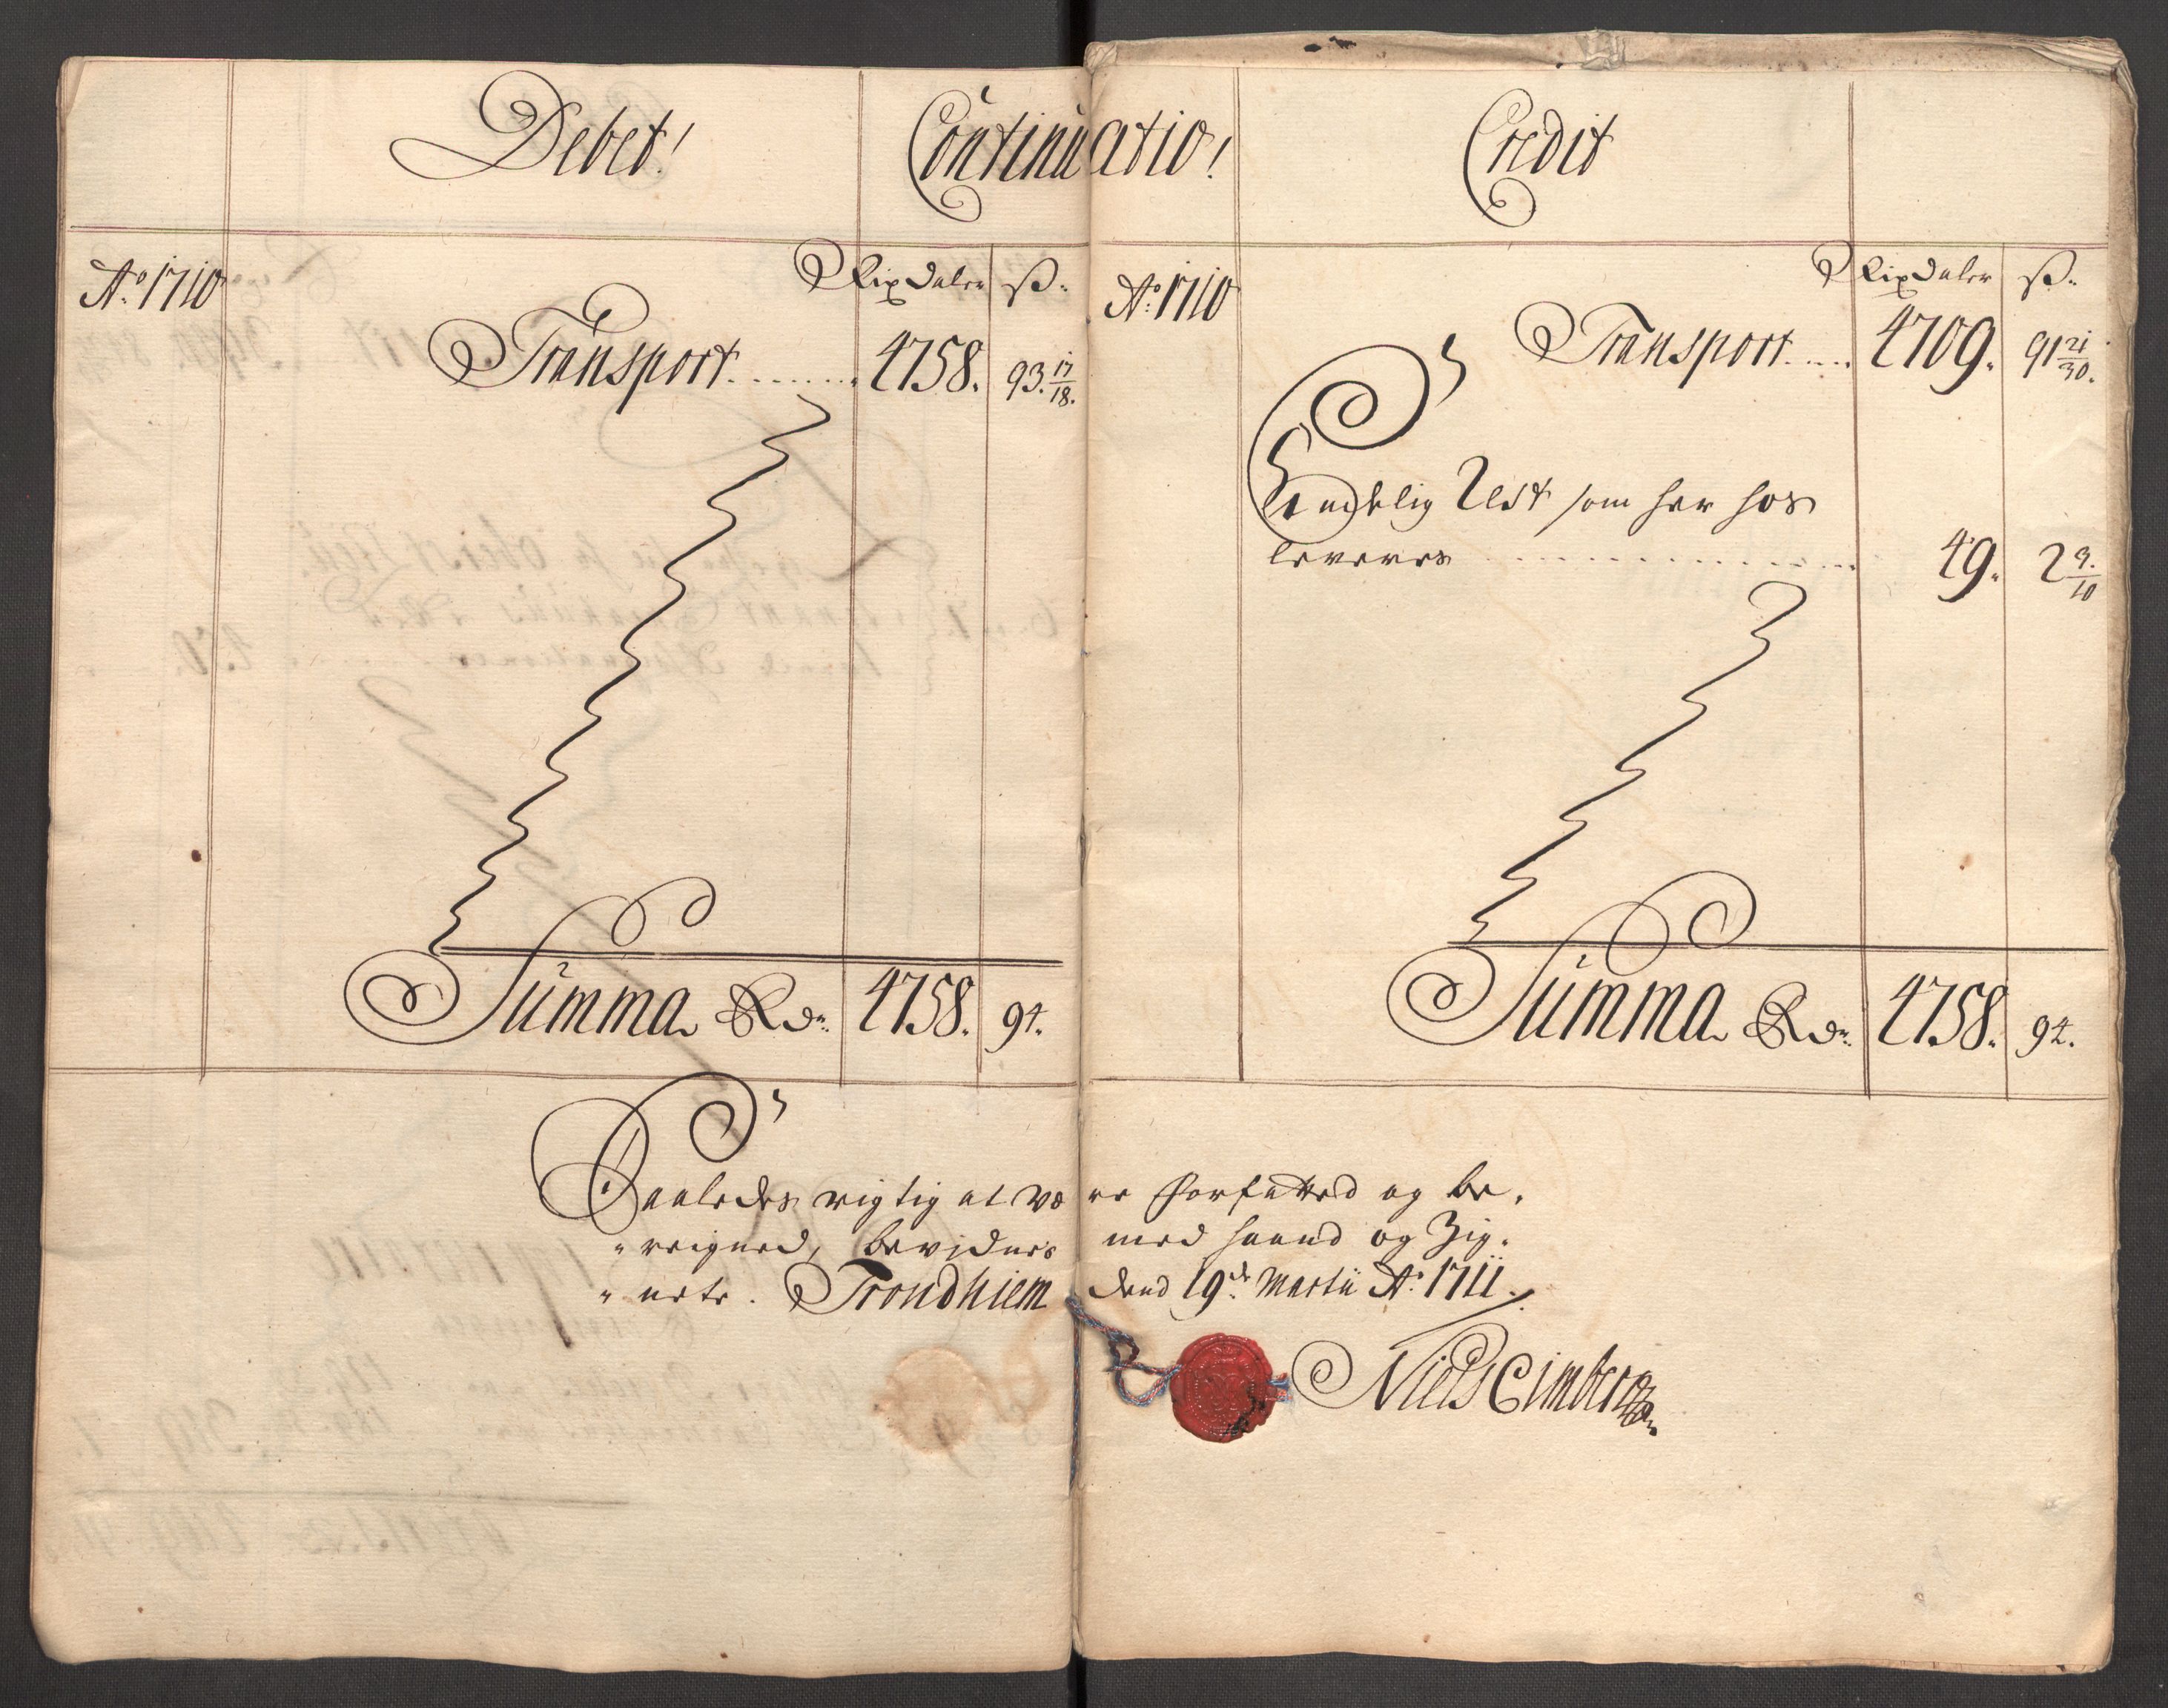 Debet! Continuatio! Credit
Ao. 1710
Rixdaler ß.
Transport ........ 4758. 93. 17/18.
Summa Rdr. 4758. 94.
Ao. 1710
Rixdaler ß.
Transport ..... 4709. 91 21/30.
Endelig Rest som her hos
leveres ............... 49. 2 9/10
Summa Rdr. 4758. 94.
Saaledes rigtig at være forfatted og be,
"reigned, bevidner med haand og Zig,
"nete. Trondhiem dend 19de Martii Ao. 1711.
Niels Cimberg